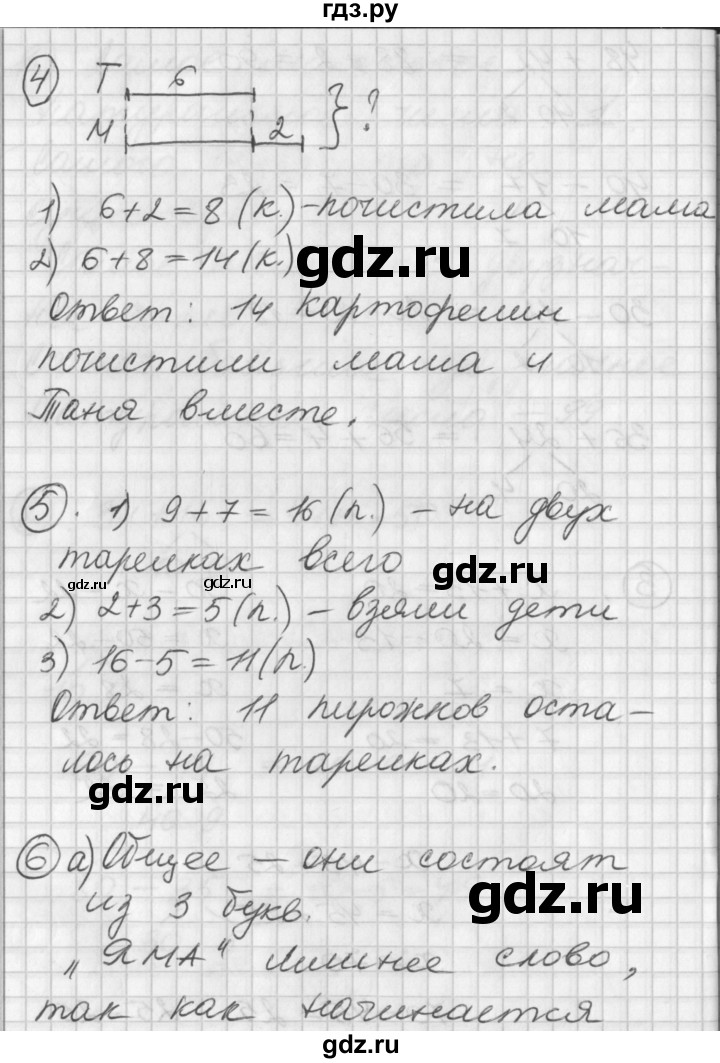 гдз.ру
4 Т 6
М 2 } ?
1) 6+2=8 (к.)-почистила мама
2) 6+8=14(к.)
gdz.ru
Ответ: 14 картофелин
почистили мама и
Таня вместе.
5. 1) 9+7=16(п.) – на двух
gdz.ru
тарелках всего
gdz.ru gdz.ru
2) 2+3=5(п.) – взяли дети
3) 16-5=11(п.)
Ответ: 11 пирожков оста-
лось на тарелках.
gdz.ru gdz.ru
6 а) Общее – они состоят
gdz.ru
из 3 букв.
„ЯМА" лишнее слово,
так как начинается